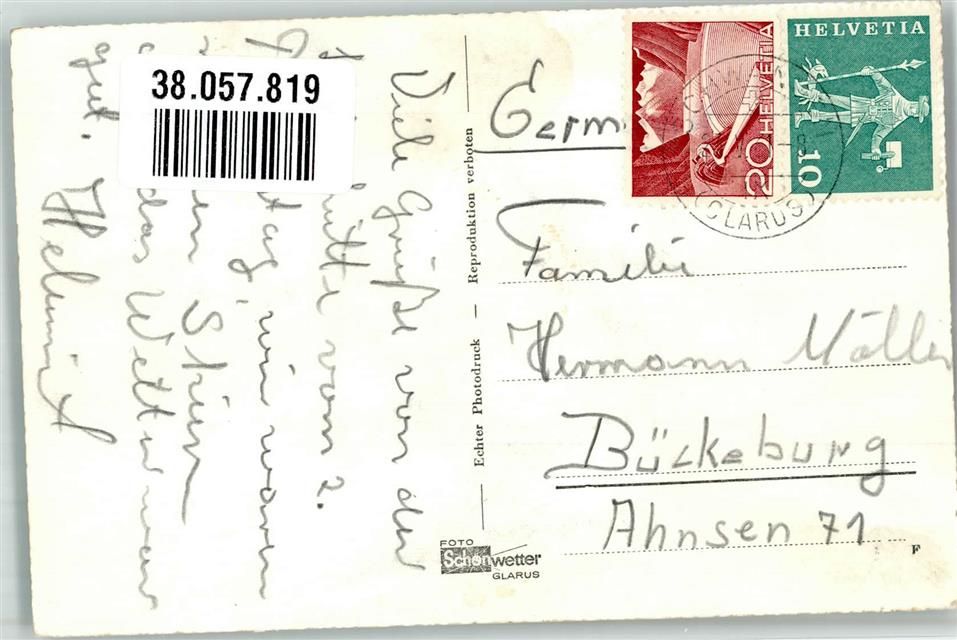 38.057.819
Viele Grüße von der
vom 2.
tag, wir waren
Skiern
das Wetter war
gut. Helmut
Echter Photodruck — Reproduktion verboten
FOTO
Schönwetter
GLARUS
HELVETIA
20
HELVETIA
10
(GLARUS)
Germ
Familie
Hermann Möller
Bückeburg
Ahnsen 71
F